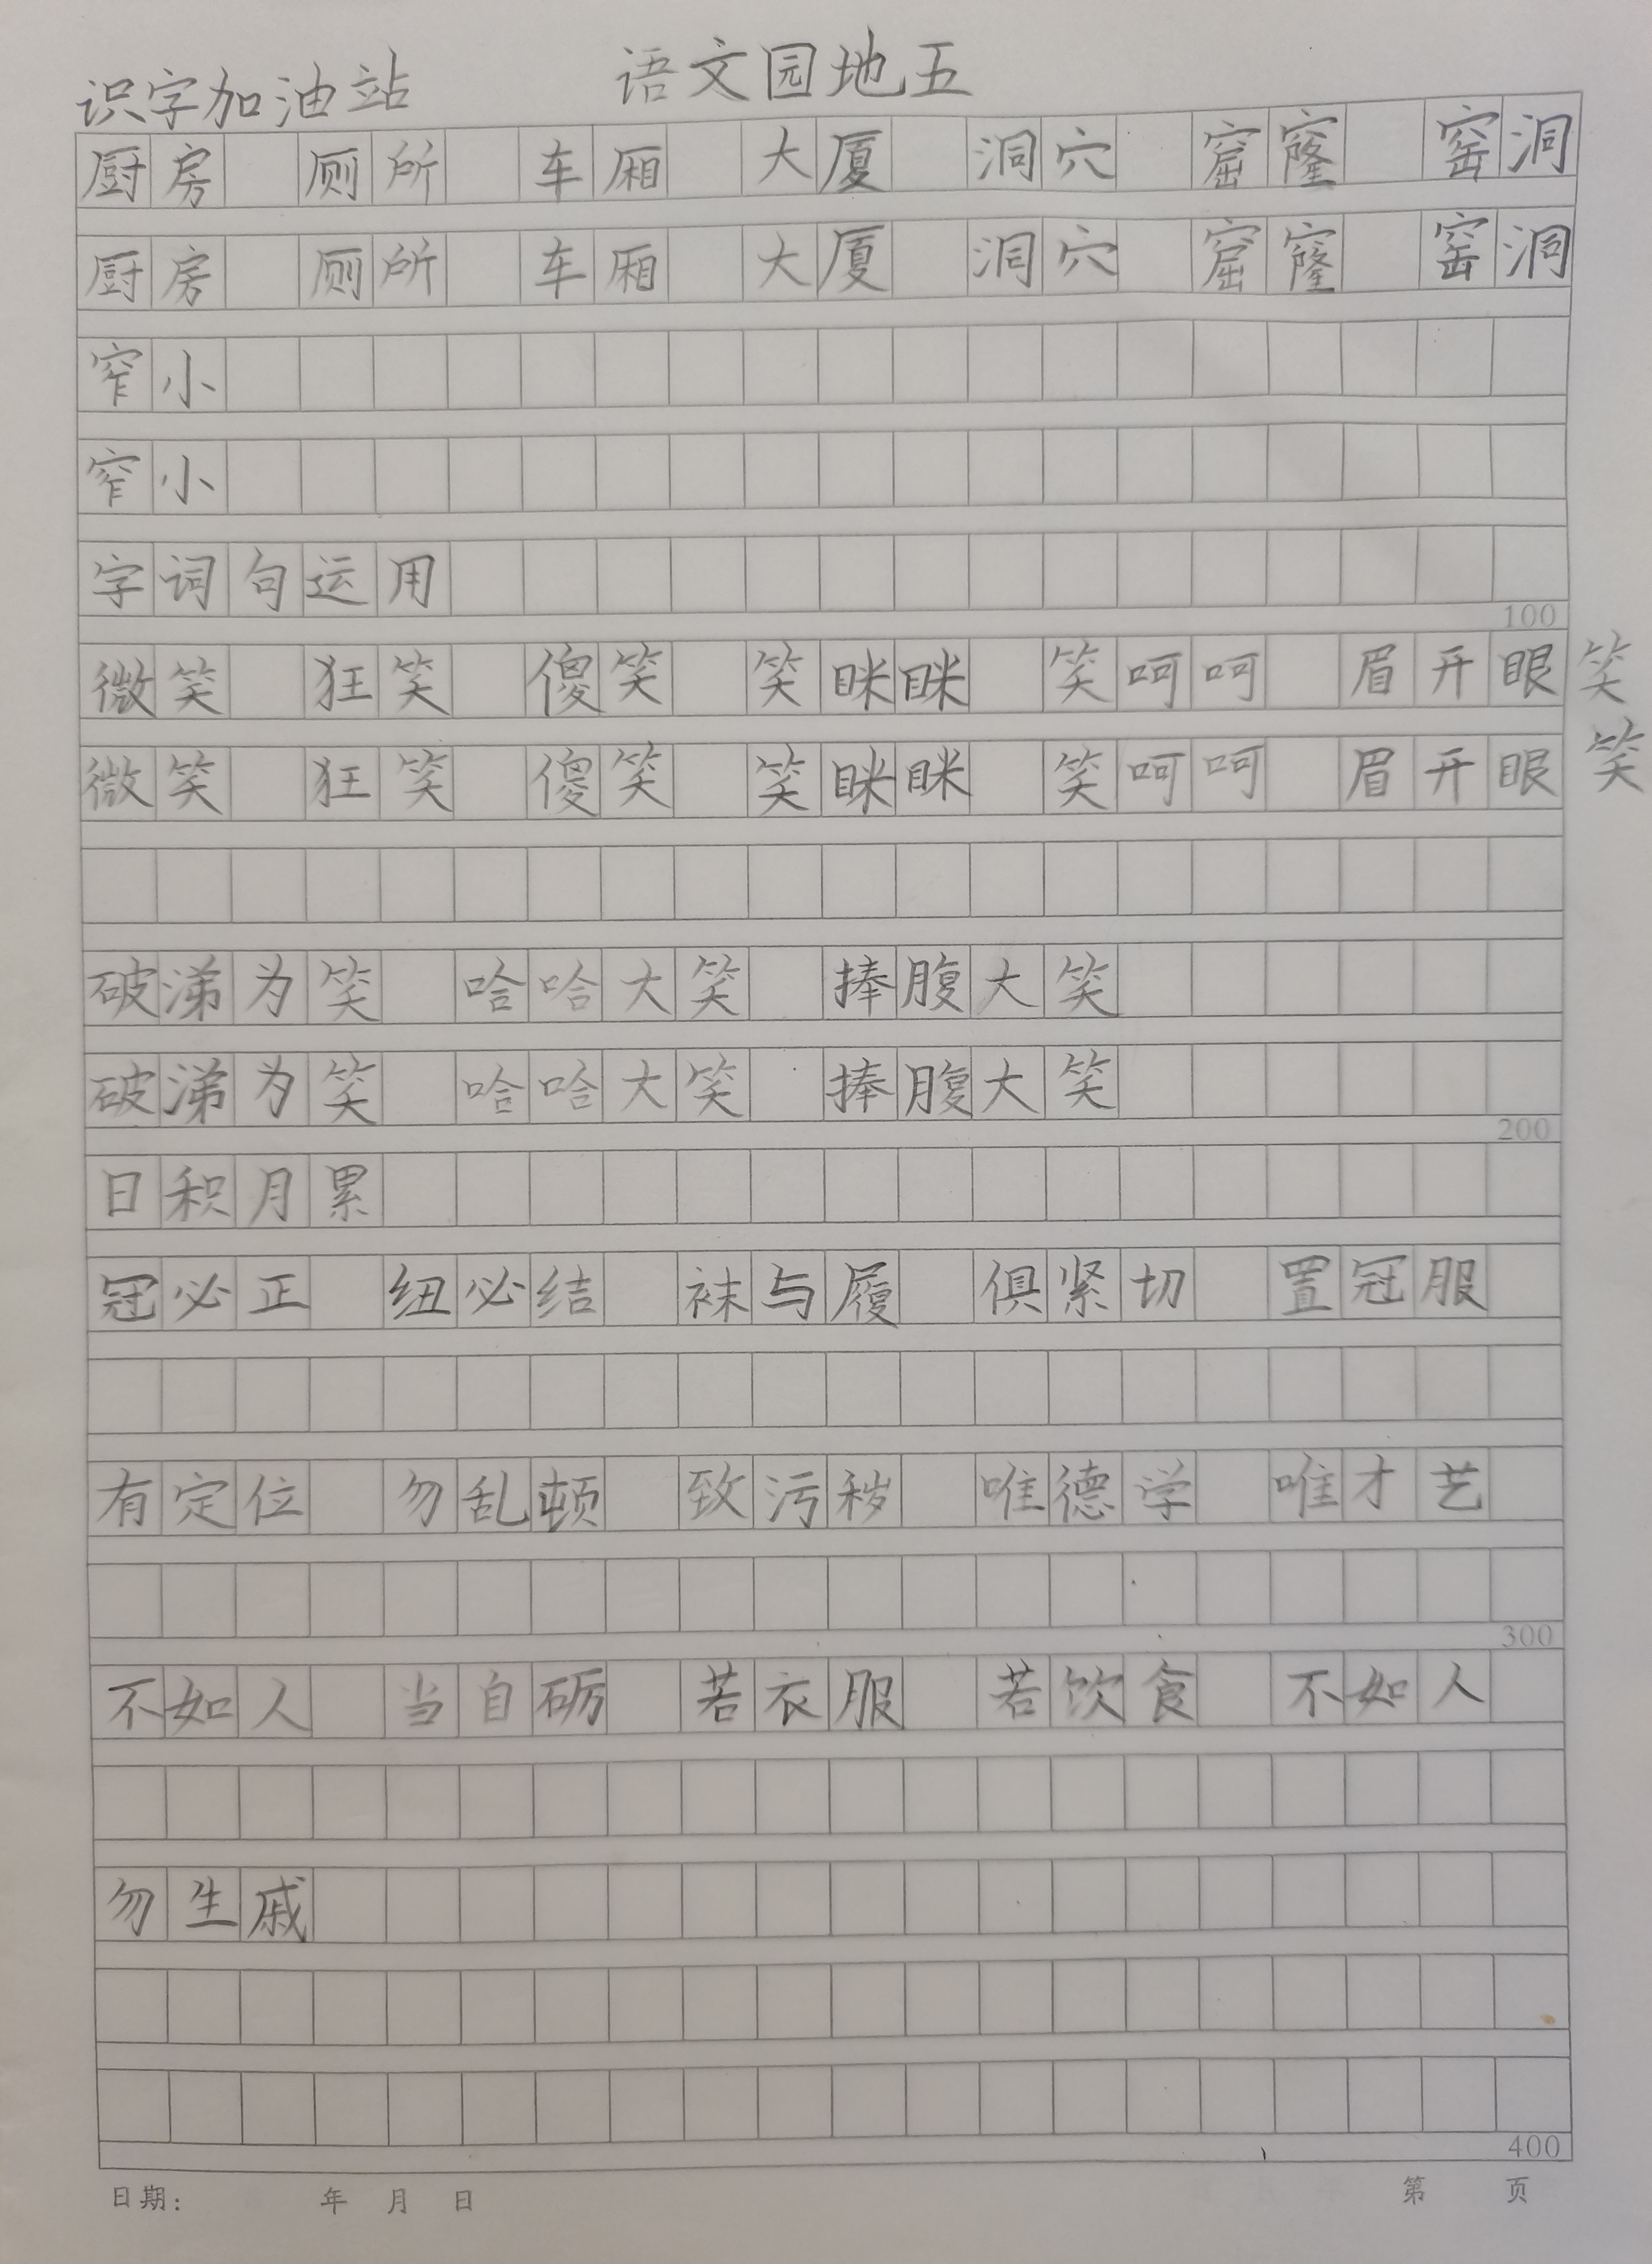 语文园地五
识字加油站
厨房 厕所 车厢 大厦 洞穴 窟窿 窑洞
厨房 厕所 车厢 大厦 洞穴 窟窿 窑洞
窄小
窄小
字词句运用
100
微笑 狂笑 傻笑 笑眯眯 笑呵呵 眉开眼笑
微笑 狂笑 傻笑 笑眯眯 笑呵呵 眉开眼笑
破涕为笑 哈哈大笑 捧腹大笑
破涕为笑 哈哈大笑 捧腹大笑
200
日积月累
冠必正 纽必结 袜与履 俱紧切 置冠服
有定位 勿乱顿 致污秽 唯德学 唯才艺
300
不如人 当自砺 若衣服 若饮食 不如人
勿生戚
400
日期： 年 月 日 第 页